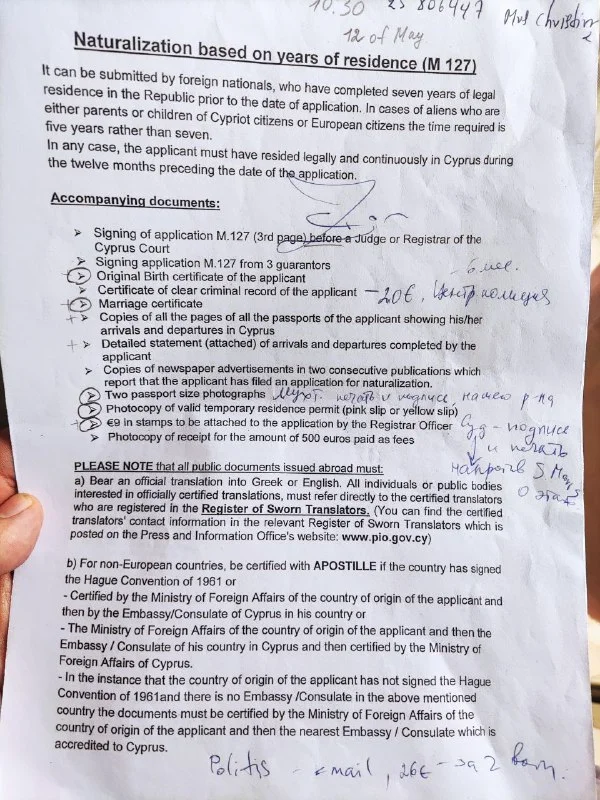 10.30 25 806447 Mrs Christin
12 of May
Naturalization based on years of residence (M 127)
It can be submitted by foreign nationals, who have completed seven years of legal
residence in the Republic prior to the date of application. In cases of aliens who are
either parents or children of Cypriot citizens or European citizens the time required is
five years rather than seven.
In any case, the applicant must have resided legally and continuously in Cyprus during
the twelve months preceding the date of the application.
Accompanying documents:
➤ Signing of application M.127 (3rd page) before a Judge or Registrar of the
Cyprus Court
➤ Signing application M.127 from 3 guarantors
➤ Original Birth certificate of the applicant
➤ Certificate of clear criminal record of the applicant – 20€, Центр полиция
- 6 мес.
➤ Marriage certificate
+ ➤ Copies of all the pages of all the passports of the applicant showing his/her
arrivals and departures in Cyprus
+ ➤ Detailed statement (attached) of arrivals and departures completed by the
applicant
➤ Copies of newspaper advertisements in two consecutive publications which
report that the applicant has filed an application for naturalization.
➤ Two passport size photographs Мухт. печать и подпись, нашего р-на
➤ Photocopy of valid temporary residence permit (pink slip or yellow slip)
➤ €9 in stamps to be attached to the application by the Registrar Officer Суд - подпись
и печать
➤ Photocopy of receipt for the amount of 500 euros paid as fees
напротив
PLEASE NOTE that all public documents issued abroad must:
a) Bear an official translation into Greek or English. All individuals or public bodies
interested in officially certified translations, must refer directly to the certified translators
who are registered in the Register of Sworn Translators. (You can find the certified
translators' contact information in the relevant Register of Sworn Translators which is
posted on the Press and Information Office's website: www.pio.gov.cy)
b) For non-European countries, be certified with APOSTILLE if the country has signed
the Hague Convention of 1961 or
- Certified by the Ministry of Foreign Affairs of the country of origin of the applicant and
then by the Embassy/Consulate of Cyprus in his country or
- The Ministry of Foreign Affairs of the country of origin of the applicant and then the
Embassy / Consulate of his country in Cyprus and then certified by the Ministry of
Foreign Affairs of Cyprus.
- In the instance that the country of origin of the applicant has not signed the Hague
Convention of 1961and there is no Embassy /Consulate in the above mentioned
country the documents must be certified by the Ministry of Foreign Affairs of the
country of origin of the applicant and then the nearest Embassy / Consulate which is
accredited to Cyprus.
Politis - email, 26€ - за 2